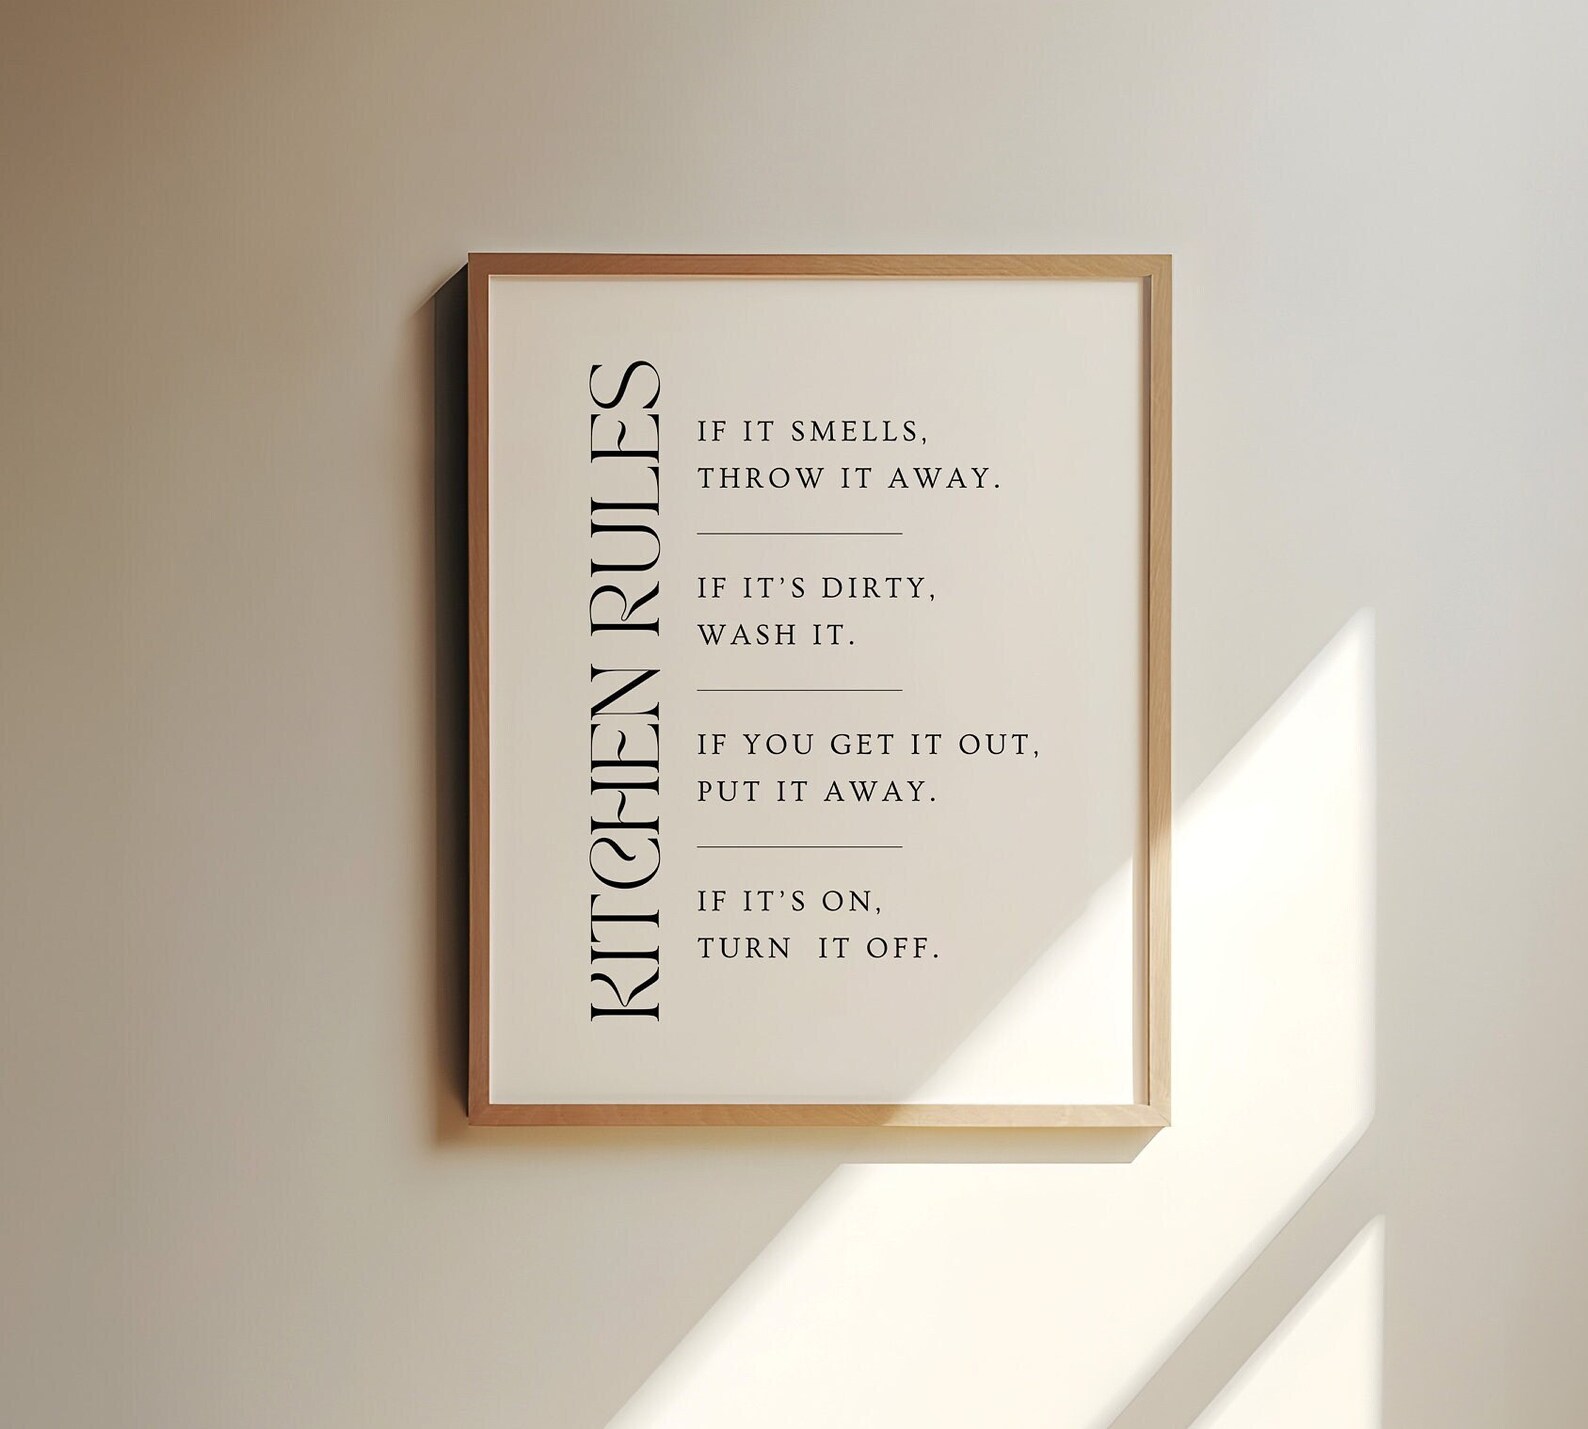 KITCHEN RULES
IF IT SMELLS,
THROW IT AWAY.
IF IT’S DIRTY,
WASH IT.
IF YOU GET IT OUT,
PUT IT AWAY.
IF IT’S ON,
TURN  IT OFF.